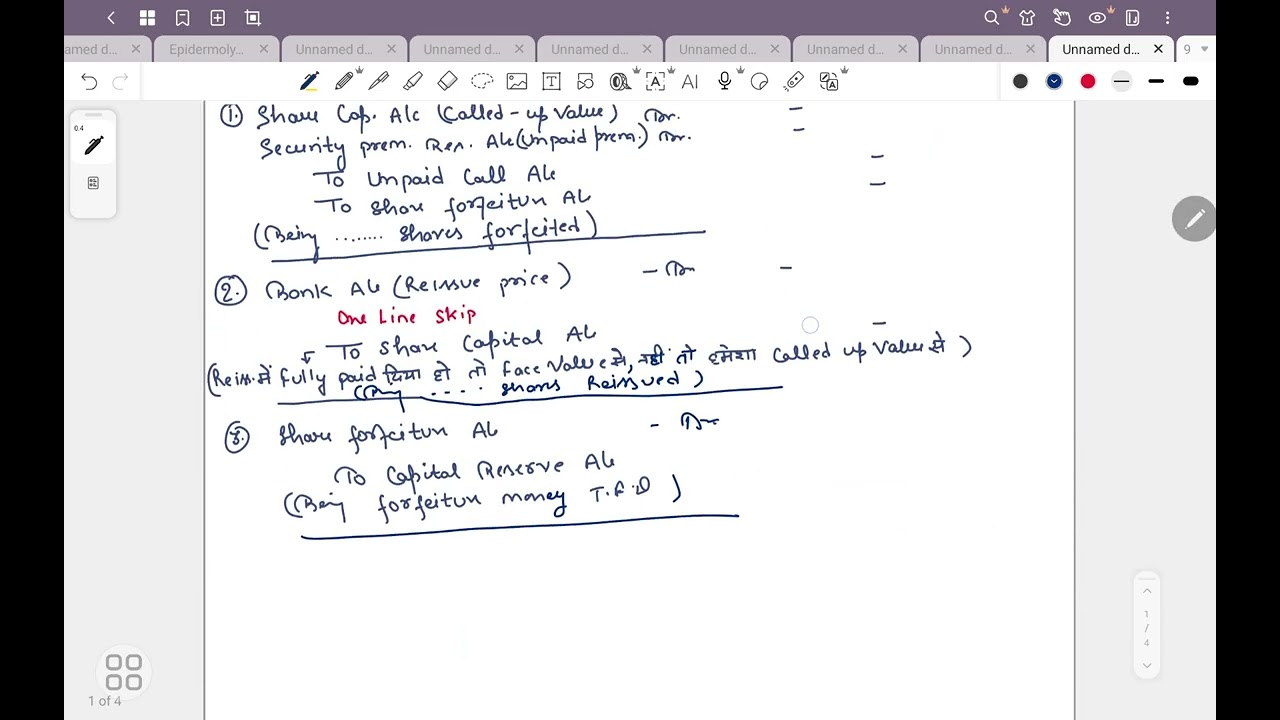 amed d...
Epidermoly...
Unnamed d...
Unnamed d...
Unnamed d...
Unnamed d...
Unnamed d...
Unnamed d...
Unnamed d...
9
0.4
① Share Cap. A/c (Called-up Value) Dr. -
Security prem. Res. A/c (Unpaid prem.) Dr. -
To Unpaid Call A/c -
To Share forfeiture A/c -
(Being ........ shares forfeited)
② Bank A/c (Reissue price) - Dr -
One Line Skip
To Share Capital A/c -
(Reiss. में fully paid दिया हो तो Face Value से, नहीं तो हमेशा Called up Value से)
(Being .... shares Reissued)
③ Share forfeiture A/c - Dr
To Capital Reserve A/c
(Being forfeiture money T.F.D)
1
/
4
1 of 4